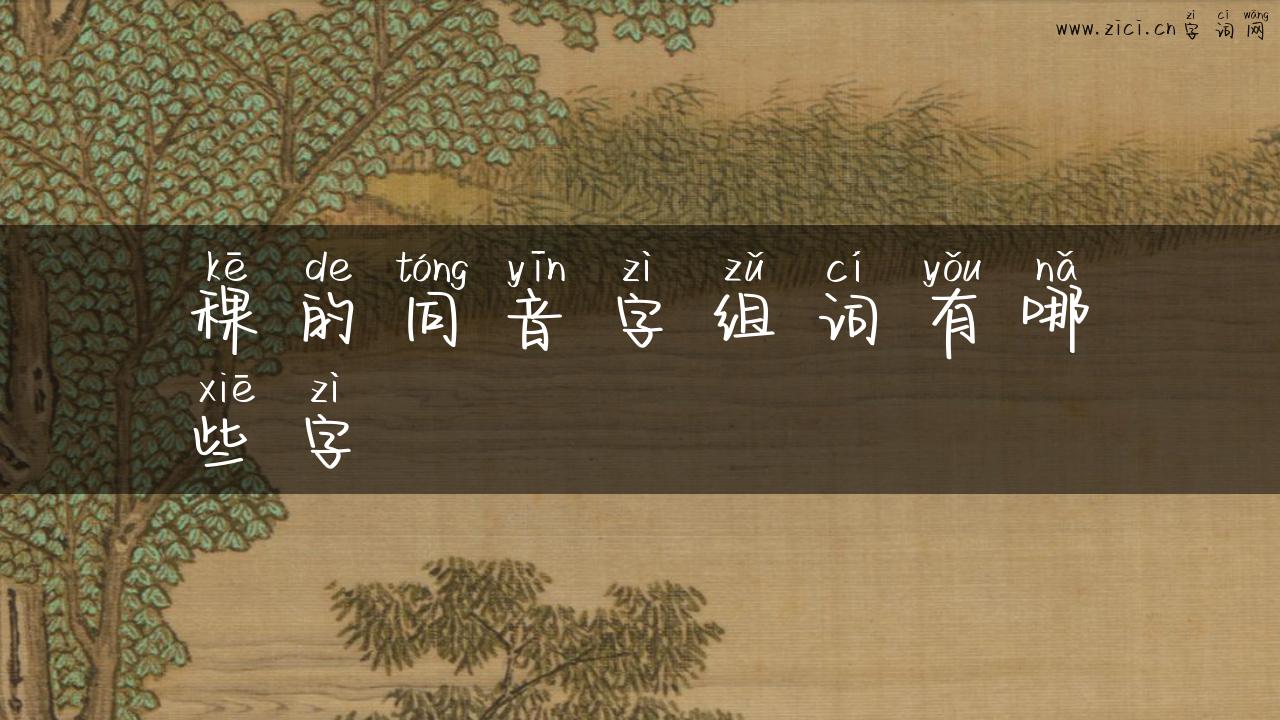 zì cí wǎng
www.zici.cn字词网
kē de tóng yīn zì zǔ cí yǒu nǎ
稞的同音字组词有哪
xiē zì
些字